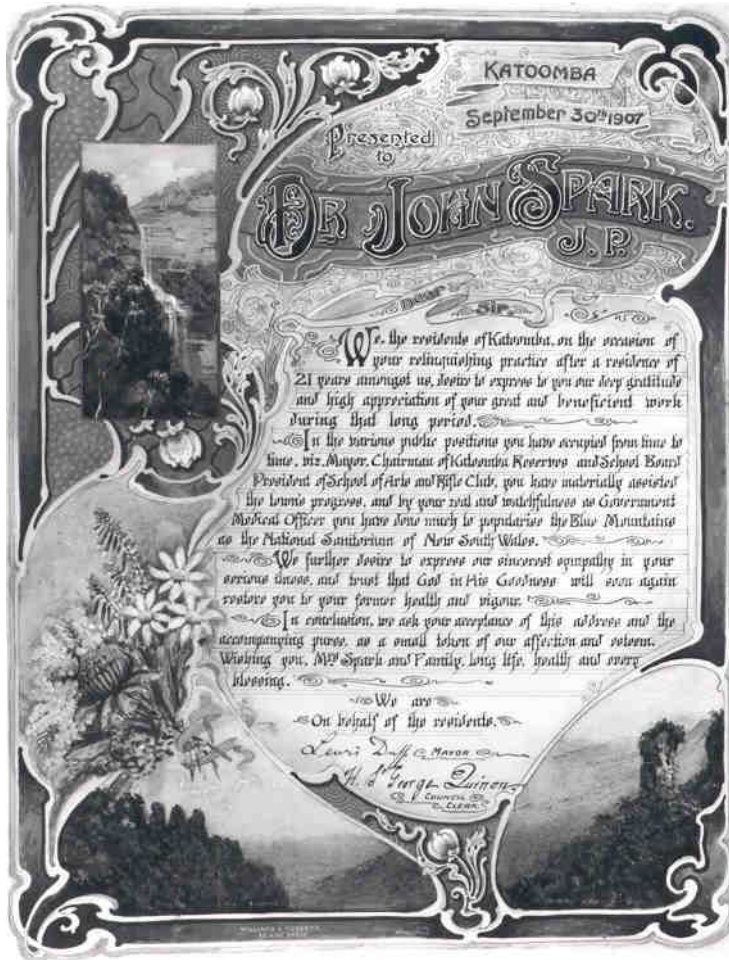 KATOOMBA
September 30th 1907
Presented
to
DR JOHN SPARK.
J. P.
Dear Sir.
We, the residents of Katoomba, on the occasion of
your relinquishing practice after a residence of
21 years amongst us, desire to express to you our deep gratitude
and high appreciation of your great and beneficent work
during that long period.
In the various public positions you have occupied from time to
time, viz. Mayor, Chairman of Katoomba Reserves and School Board
President of School of Arts and Rifle Club, you have materially assisted
the town's progress, and by your zeal and watchfulness as Government
Medical Officer you have done much to popularise the Blue Mountains
as the National Sanitorium of New South Wales.
We further desire to express our sincerest sympathy in your
serious illness, and trust that God in His Goodness will soon again
restore you to your former health and vigour.
In conclusion, we ask your acceptance of this address and the
accompanying purse, as a small token of our affection and esteem.
Wishing you, Mrs Spark and Family, long life, health and every
blessing.
We are
On behalf of the residents.
Lewis Duff MAYOR
H. St George Quinon
COUNCIL
CLERK